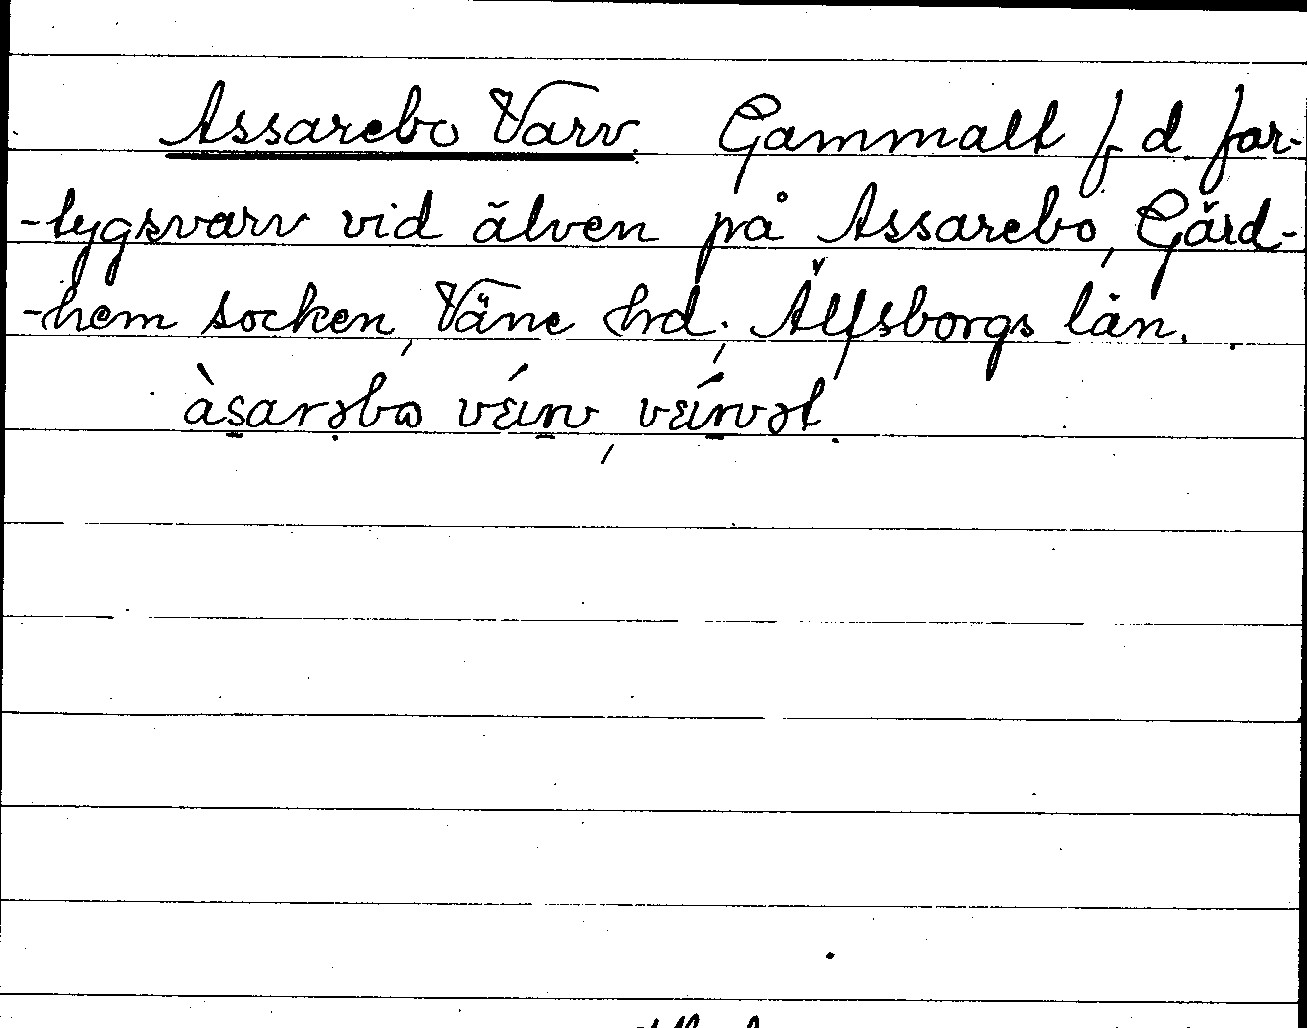 Assarebo Varv. Gammalt f d far-
-tygsvarv vid älven på Assarebo, Gärd-
-hem socken, Väne hd; Älfsborgs län.